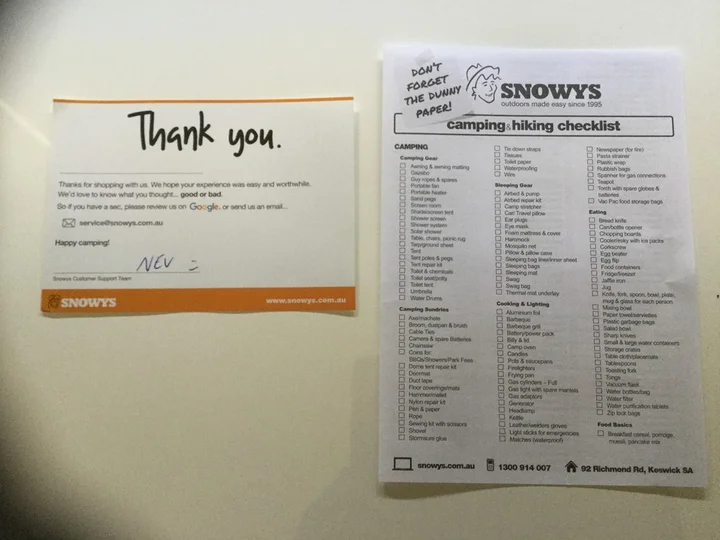 Thank you.
Thanks for shopping with us. We hope your experience was easy and worthwhile.
We'd love to know what you thought... good or bad.
So if you have a sec, please review us on Google, or send us an email...
service@snowys.com.au
Happy camping!
NEV
Snowys Customer Support Team
SNOWYS
www.snowys.com.au
DON'T
FORGET
THE DUNNY
PAPER!
SNOWYS
outdoors made easy since 1995
camping & hiking checklist
CAMPING
Camping Gear
Awning & awning matting
Gazebo
Guy ropes & spares
Portable fan
Portable heater
Sand pegs
Screen room
Shade/screen tent
Shower screen
Shower system
Solar shower
Table, chairs, picnic rug
Tarp/ground sheet
Tent
Tent poles & pegs
Tent repair kit
Toilet & chemicals
Toilet seat/potty
Toilet tent
Umbrella
Water Drums
Camping Sundries
Axe/machete
Broom, dustpan & brush
Cable Ties
Camera & spare Batteries
Chainsaw
Coins for:
BBQs/Showers/Park Fees
Dome tent repair kit
Doormat
Duct tape
Floor coverings/mats
Hammer/mallet
Nylon repair kit
Pen & paper
Rope
Sewing kit with scissors
Shovel
Stormsure glue
Tie down straps
Tissues
Toilet paper
Waterproofing
Wire
Sleeping Gear
Airbed & pump
Airbed repair kit
Camp stretcher
Car/ Travel pillow
Ear plugs
Eye mask
Foam mattress & cover
Hammock
Mosquito net
Pillow & pillow case
Sleeping bag liner/inner sheet
Sleeping bags
Sleeping mat
Swag
Swag bag
Thermal cost underlay
Cooking & Lighting
Aluminium foil
Barbeque
Barbeque grill
Battery/power pack
Billy & lid
Camp oven
Candles
Pots & saucepans
Firelighters
Frying pan
Gas cylinders – Full
Gas light with spare mantels
Gas adaptors
Generator
Headlamp
Kettle
Leather/welders gloves
Light sticks for emergencies
Matches (waterproof)
Newspaper (for fire)
Pasta strainer
Plastic wrap
Rubbish bags
Spanner for gas connections
Teapot
Torch with spare globes &
batteries
Vac Pac food storage bags
Eating
Bread knife
Can/bottle opener
Chopping boards
Cooler/esky with ice packs
Corkscrew
Egg beater
Egg flip
Food containers
Fridge/freezer
Jaffle iron
Jug
Knife, fork, spoon, bowl, plate,
mug & glass for each person
Mixing bowl
Paper towel/serviettes
Plastic garbage bags
Salad bowl
Sharp knives
Small & large water containers
Storage crates
Table cloth/placemats
Tablespoons
Toasting fork
Tongs
Vacuum flask
Water bottles/bag
Water filter
Water purification tablets
Zip lock bags
Food Basics
Breakfast cereal, porridge,
muesli, pancake mix
snowys.com.au
1300 914 007
92 Richmond Rd, Keswick SA